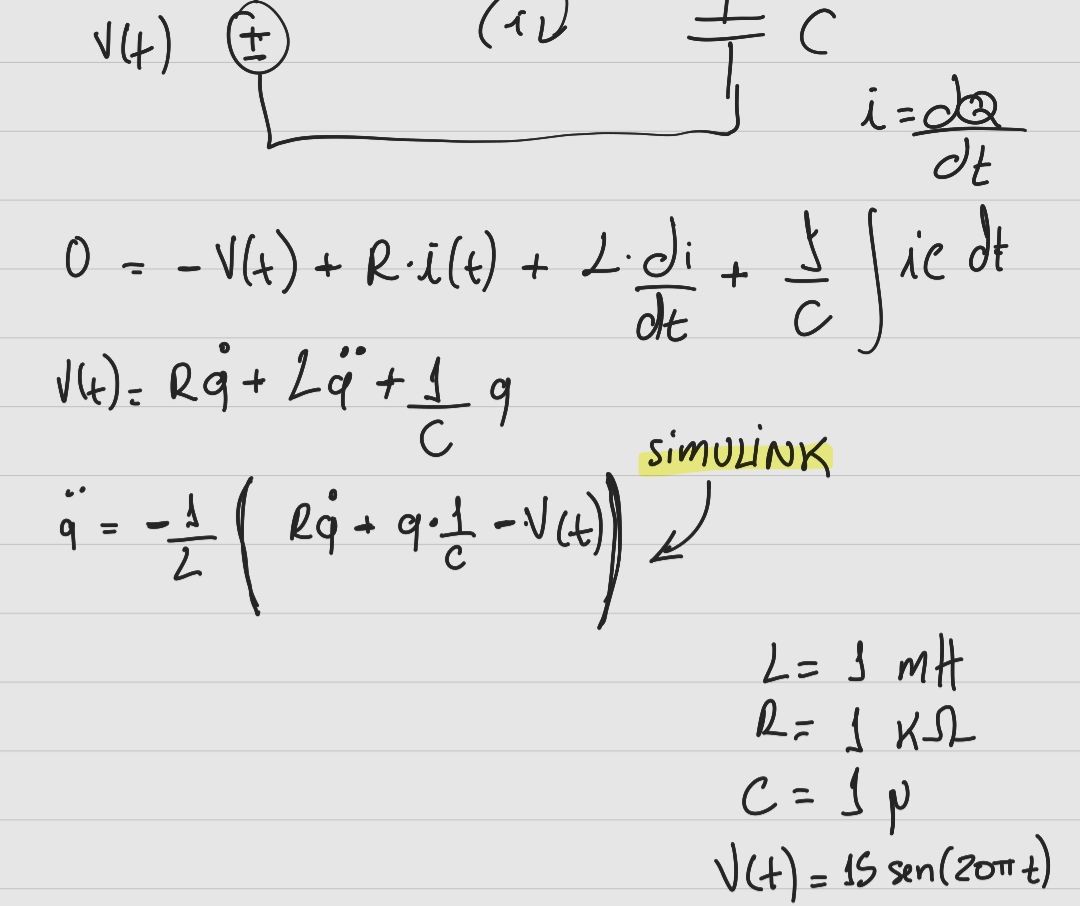 V(t) ± (i) C
i = dQ/dt
0 = - V(t) + R·i(t) + L·di/dt + 1/C ∫ic dt
V(t) = Rq̇ + Lq̈ + 1/C q
SiMULiNK
q̈ = -1/L ( Rq̇ + q·1/C - V(t) )
L = 1 mH
R = 1 KΩ
C = 1 μ
V(t) = 15 sen(20π t)